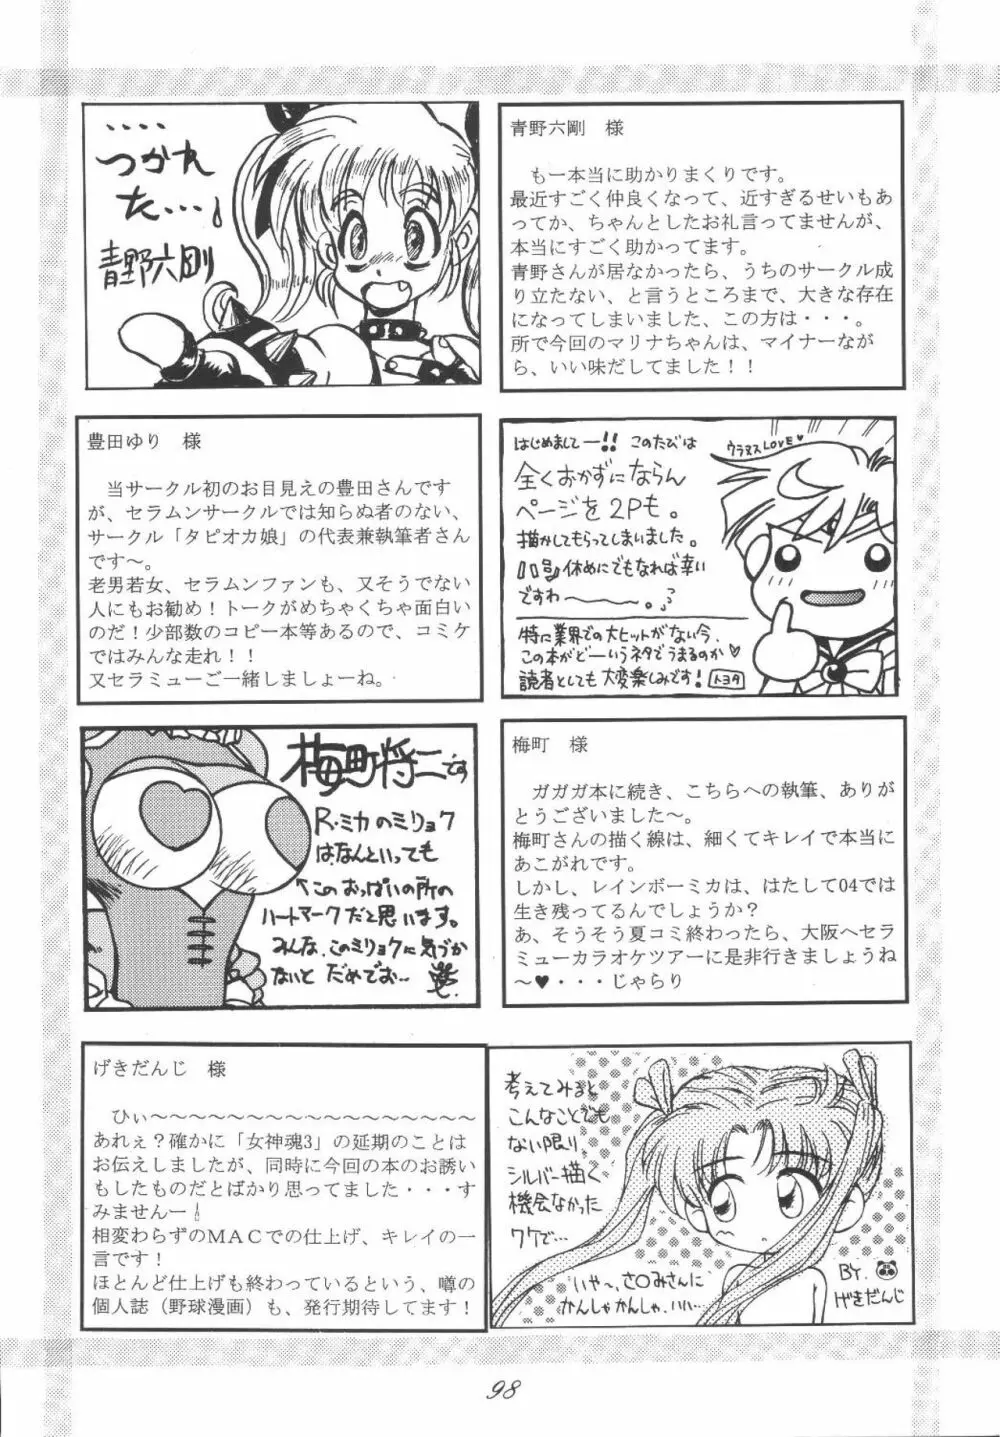 ・・・・
つかれ
た・・・
青野六剛
青野六剛　様
も一本当に助かりまくりです。
最近すごく仲良くなって、近すぎるせいもあ
ってか、ちゃんとしたお礼言ってませんが、
本当にすごく助かってます。
青野さんが居なかったら、うちのサークル成
り立たない、と言うところまで、大きな存在
になってしまいました、この方は・・・。
所で今回のマリナちゃんは、マイナーなが
ら、いい味だしてました！！
豊田ゆり　様
当サークル初のお目見えの豊田さんです
が、セラムンサークルでは知らぬ者のない、
サークル「タピオカ娘」の代表兼執筆者さん
です〜。
老男若女、セラムンファンも、又そうでない
人にもお勧め！トークがめちゃくちゃ面白い
のだ！少部数のコピー本等あるので、コミケ
ではみんな走れ！！
又セラミューご一緒しましょーね。
はじめましてー!! このたびは
ウラヌスLOVE♥
全くおかずにならん
ページを2Pも。
描かしてもらってしまいました。
休めにでもなれば幸い
ですわ〜〜〜。
特に業界での大ヒットがない今、
この本がどーいうネタでうまるのか♥
読者としても大変楽しみです! トヨタ
梅町将二です
R・ミカのミリョク
は、なんといっても
←このおっぱいの所の
ハートマークだと思います。
みんな、このミリョクに気づか
ないとだめでお…
梅町　様
ガガガ本に続き、こちらへの執筆、ありが
とうございました〜。
梅町さんの描く線は、細くてキレイで本当に
あこがれです。
しかし、レインボーミカは、はたして04では
生き残ってるんでしょうか？
あ、そうそう夏コミ終わったら、大阪へセラ
ミューカラオケツアーに是非行きましょうね
〜♥・・・じゃらり
げきだんじ　様
ひぃ〜〜〜〜〜〜〜〜〜〜〜〜〜〜〜〜〜
あれぇ？確かに「女神魂3」の延期のことは
お伝えしましたが、同時に今回の本のお誘い
もしたものだとばかり思ってました・・・す
みませんー
相変わらずのＭＡＣでの仕上げ、キレイの一
言です！
ほとんど仕上げも終わっているという、噂の
個人誌（野球漫画）も、発行期待してます！
考えてみると
こんなことでも
ない限り
シルバー描く
機会なかった
ワケで…
いや〜、さ○みさんに
かんしゃかんしゃ、いい…
BY.
げきだんじ
98